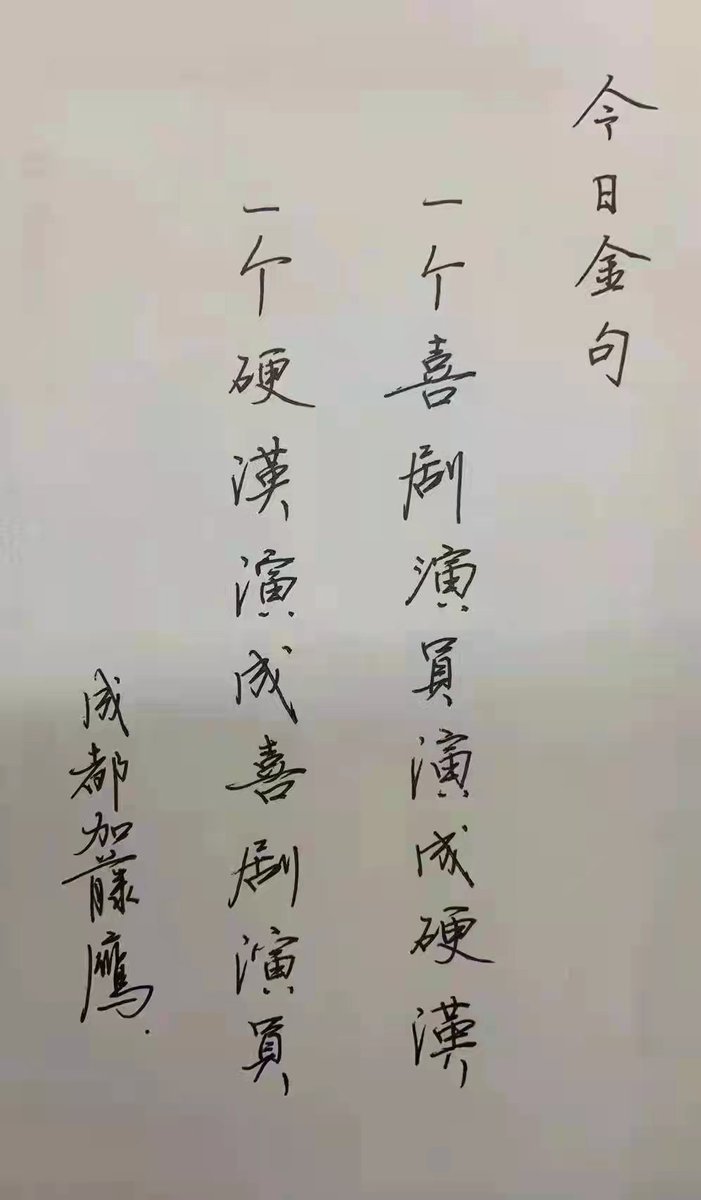 今日金句
一个喜剧演員演成硬漢
一个硬漢演成喜剧演員
成都加藤鹰.